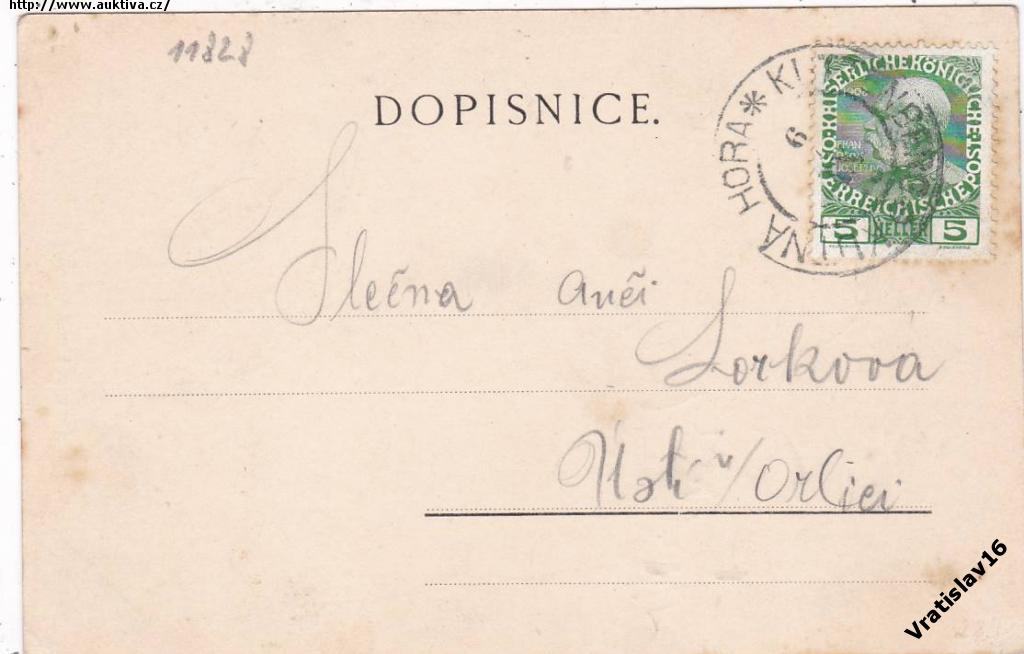 http://www.auktiva.cz/
11828
DOPISNICE.
KUTNÁ HORA
KAISERLICHE KÖNIGLICHE
ÖSTERREICHISCHE POST
5 HELLER 5
Slečna Anči
Lorkova
Ústí v/Orlici
Vratislav16